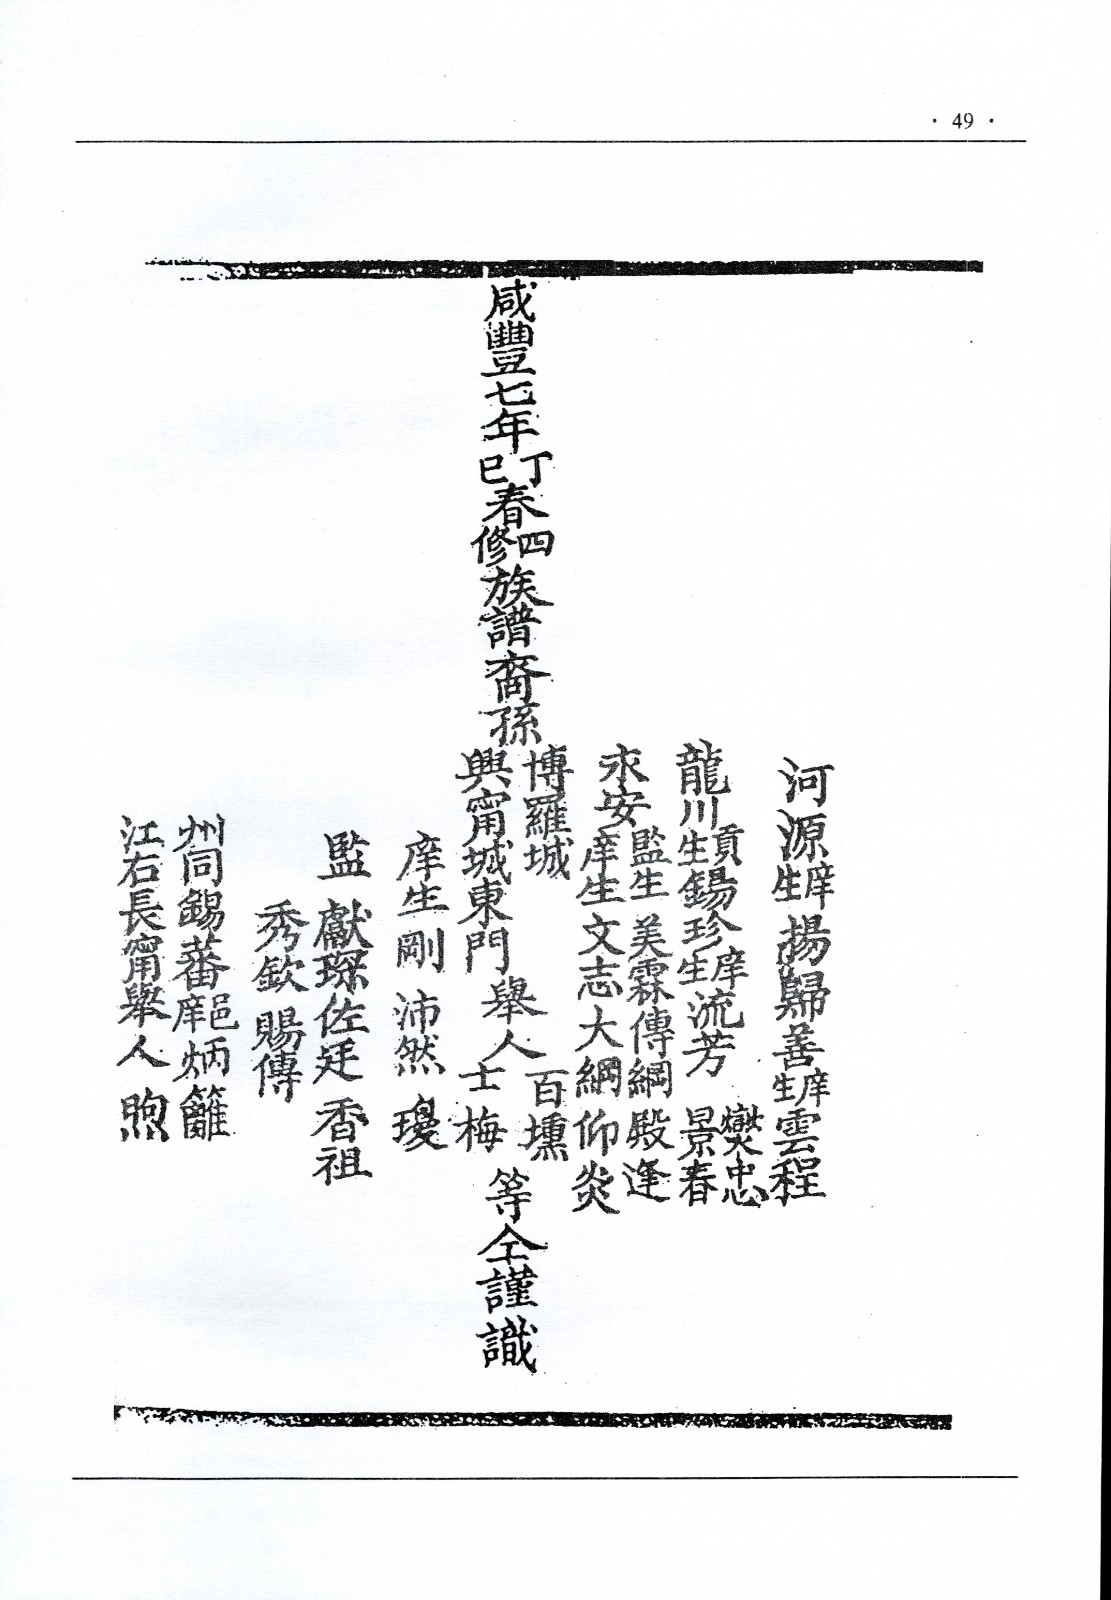 · 49 ·
河源庠生揚歸善庠生雲程
龍川貢生錫珍庠生流芳 燮忠 景春
永安監生美霖傳綱殿逢
庠生文志大綱仰炎
咸豐七年丁巳春四修族譜裔孫
博羅城
興甯城東門
舉人百壎
士梅
等仝謹識
庠生剛 沛然 瓊
監 獻琛佐廷香祖
秀欽賜傳
州同錫蕃邑庠炳籬
江右長甯舉人煦